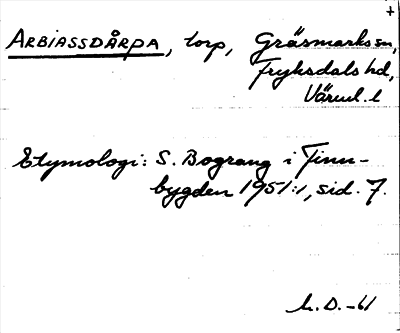 +
ARBIASSDÅRPA, torp, Gräsmarks sn,
Fryksdals hd,
Värml. l
Etymologi: S. Bograng i Finn-
bygden 1951:1, sid. 7.
L.D.-61